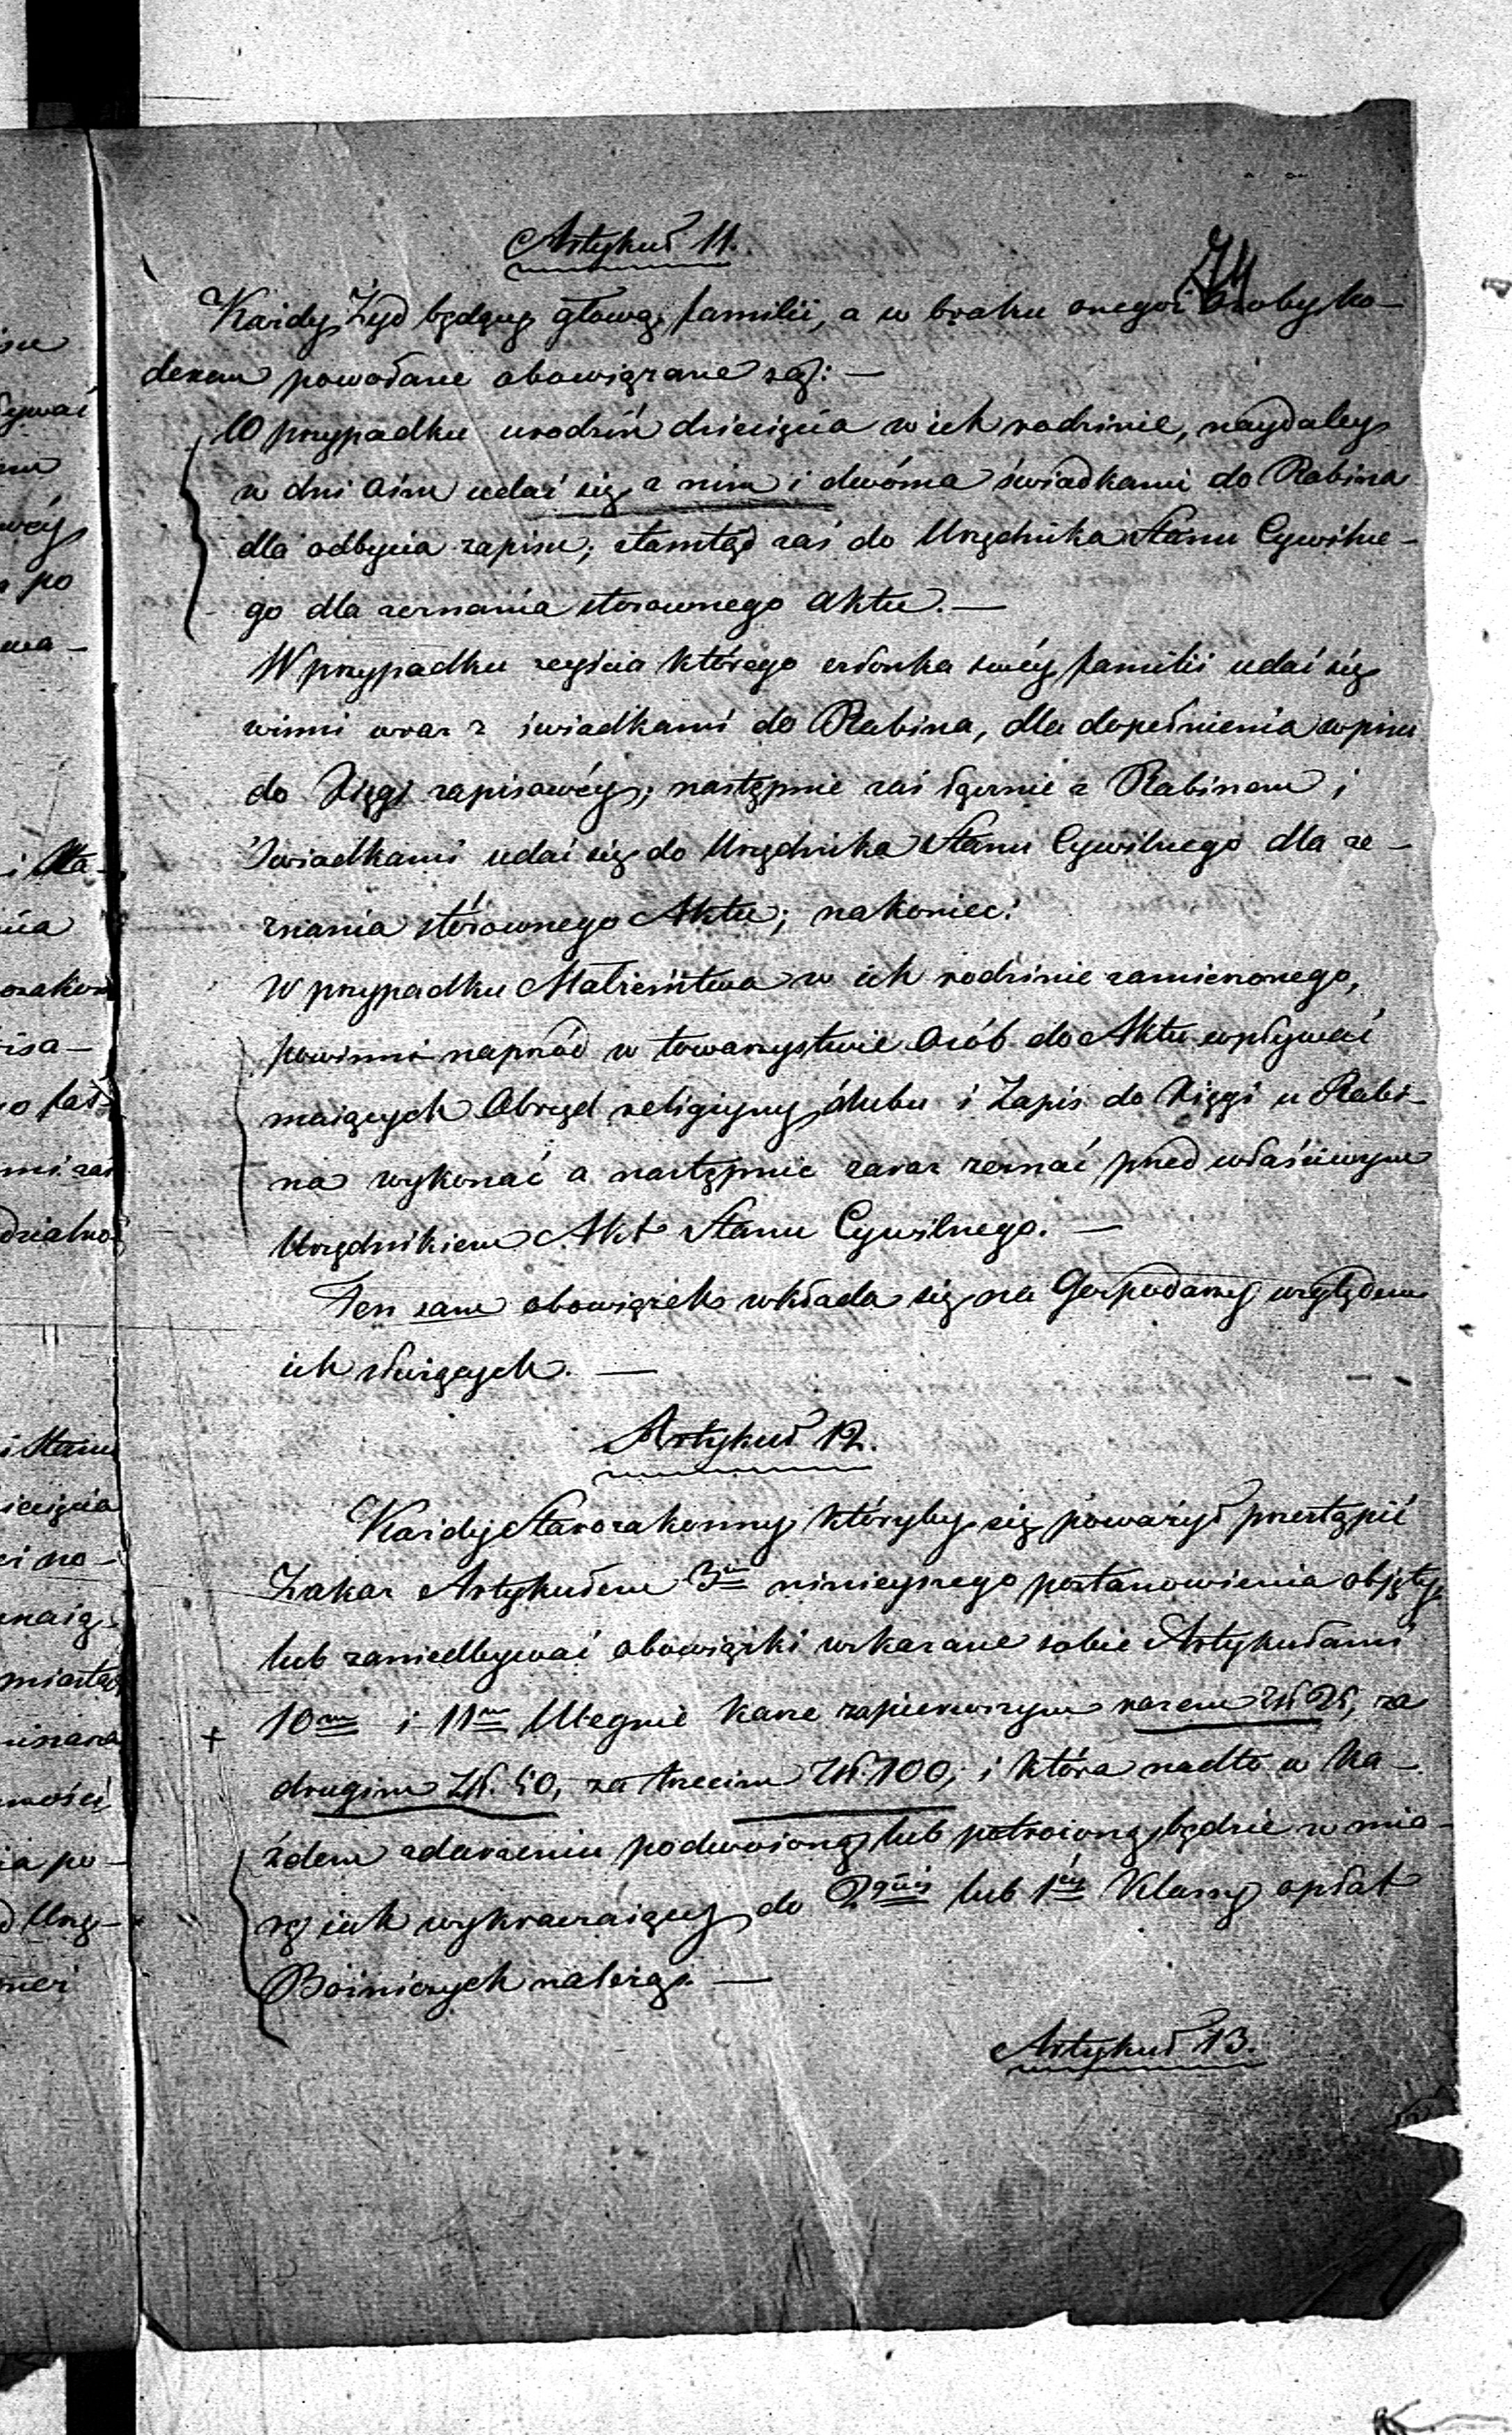 74
Artykuł 11.
Każdy Żyd będący głową familii, a w braku onegoż Osoby ko-
dexem powołane obowiązane są: —
W przypadku urodzin dziecięcia w ich rodzinie, naydaley
w dni ośm udać się z nim i dwóma świadkami do Rabina
dla odbycia zapisu; ztamtąd zaś do Urzędnika Stanu Cywilne-
go dla zeznania stosownego Aktu. —
W przypadku zeyścia którego członka swéy familii udać się
winni wraz z świadkami do Rabina, dla dopełnienia wpisu
do Xięgi zapisowéy; następnie zaś łącznie z Rabinem i
Świadkami udać się do Urzędnika Stanu Cywilnego dla ze-
znania stósownego Aktu; nakoniec:
W przypadku Małżeństwa w ich rodzinie zamierzonego,
powinni naprzód w towarzystwie Osób do Aktu wpływać
maiących Obrzęd religiyny ślubu i Zapis do Xięgi u Rabi-
na wykonać a następnie zaraz zeznać przed właściwym
Urzędnikiem Akt Stanu Cywilnego. —
Ten sam obowiązek wkłada się na Gospodarzy względem
ich służących. —
Artykuł 12.
Każdy Starozakonny któryby się poważył przestąpić
Zakaz Artykułem 3m ninieyszego postanowienia objęty
lub zaniedbywać obowiązki wskazane sobie Artykułami
+ 10m i 11m Ulegnie karze zapierwszym razem Złł 25, za
drugim Złł. 50, za trzecim Złł. 100; i która nadto w ka-
żdem zdarzeniu podwoioną lub potroioną będzie w mia-
rę iak wykraczaiący do 2giéy lub 1éy Klassy opłat
Bóżniczych należą. —
Artykuł 13.